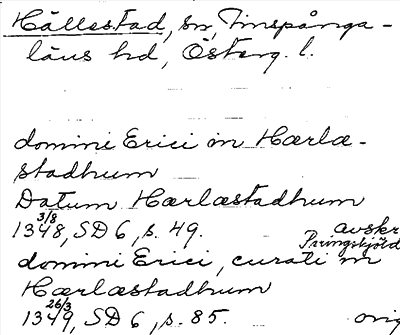 Hällestad, sn, Finspånga-
läns hd, Österg. l.
domini Erici in Hærlæ-
stadhum
Datum Hærlæstadhum
1348 3/8, SD 6, s. 49. avskr
Pringskjöld
domini Erici, curati in
Hærlæstadhum
1349 26/3, SD 6, s. 85. orig